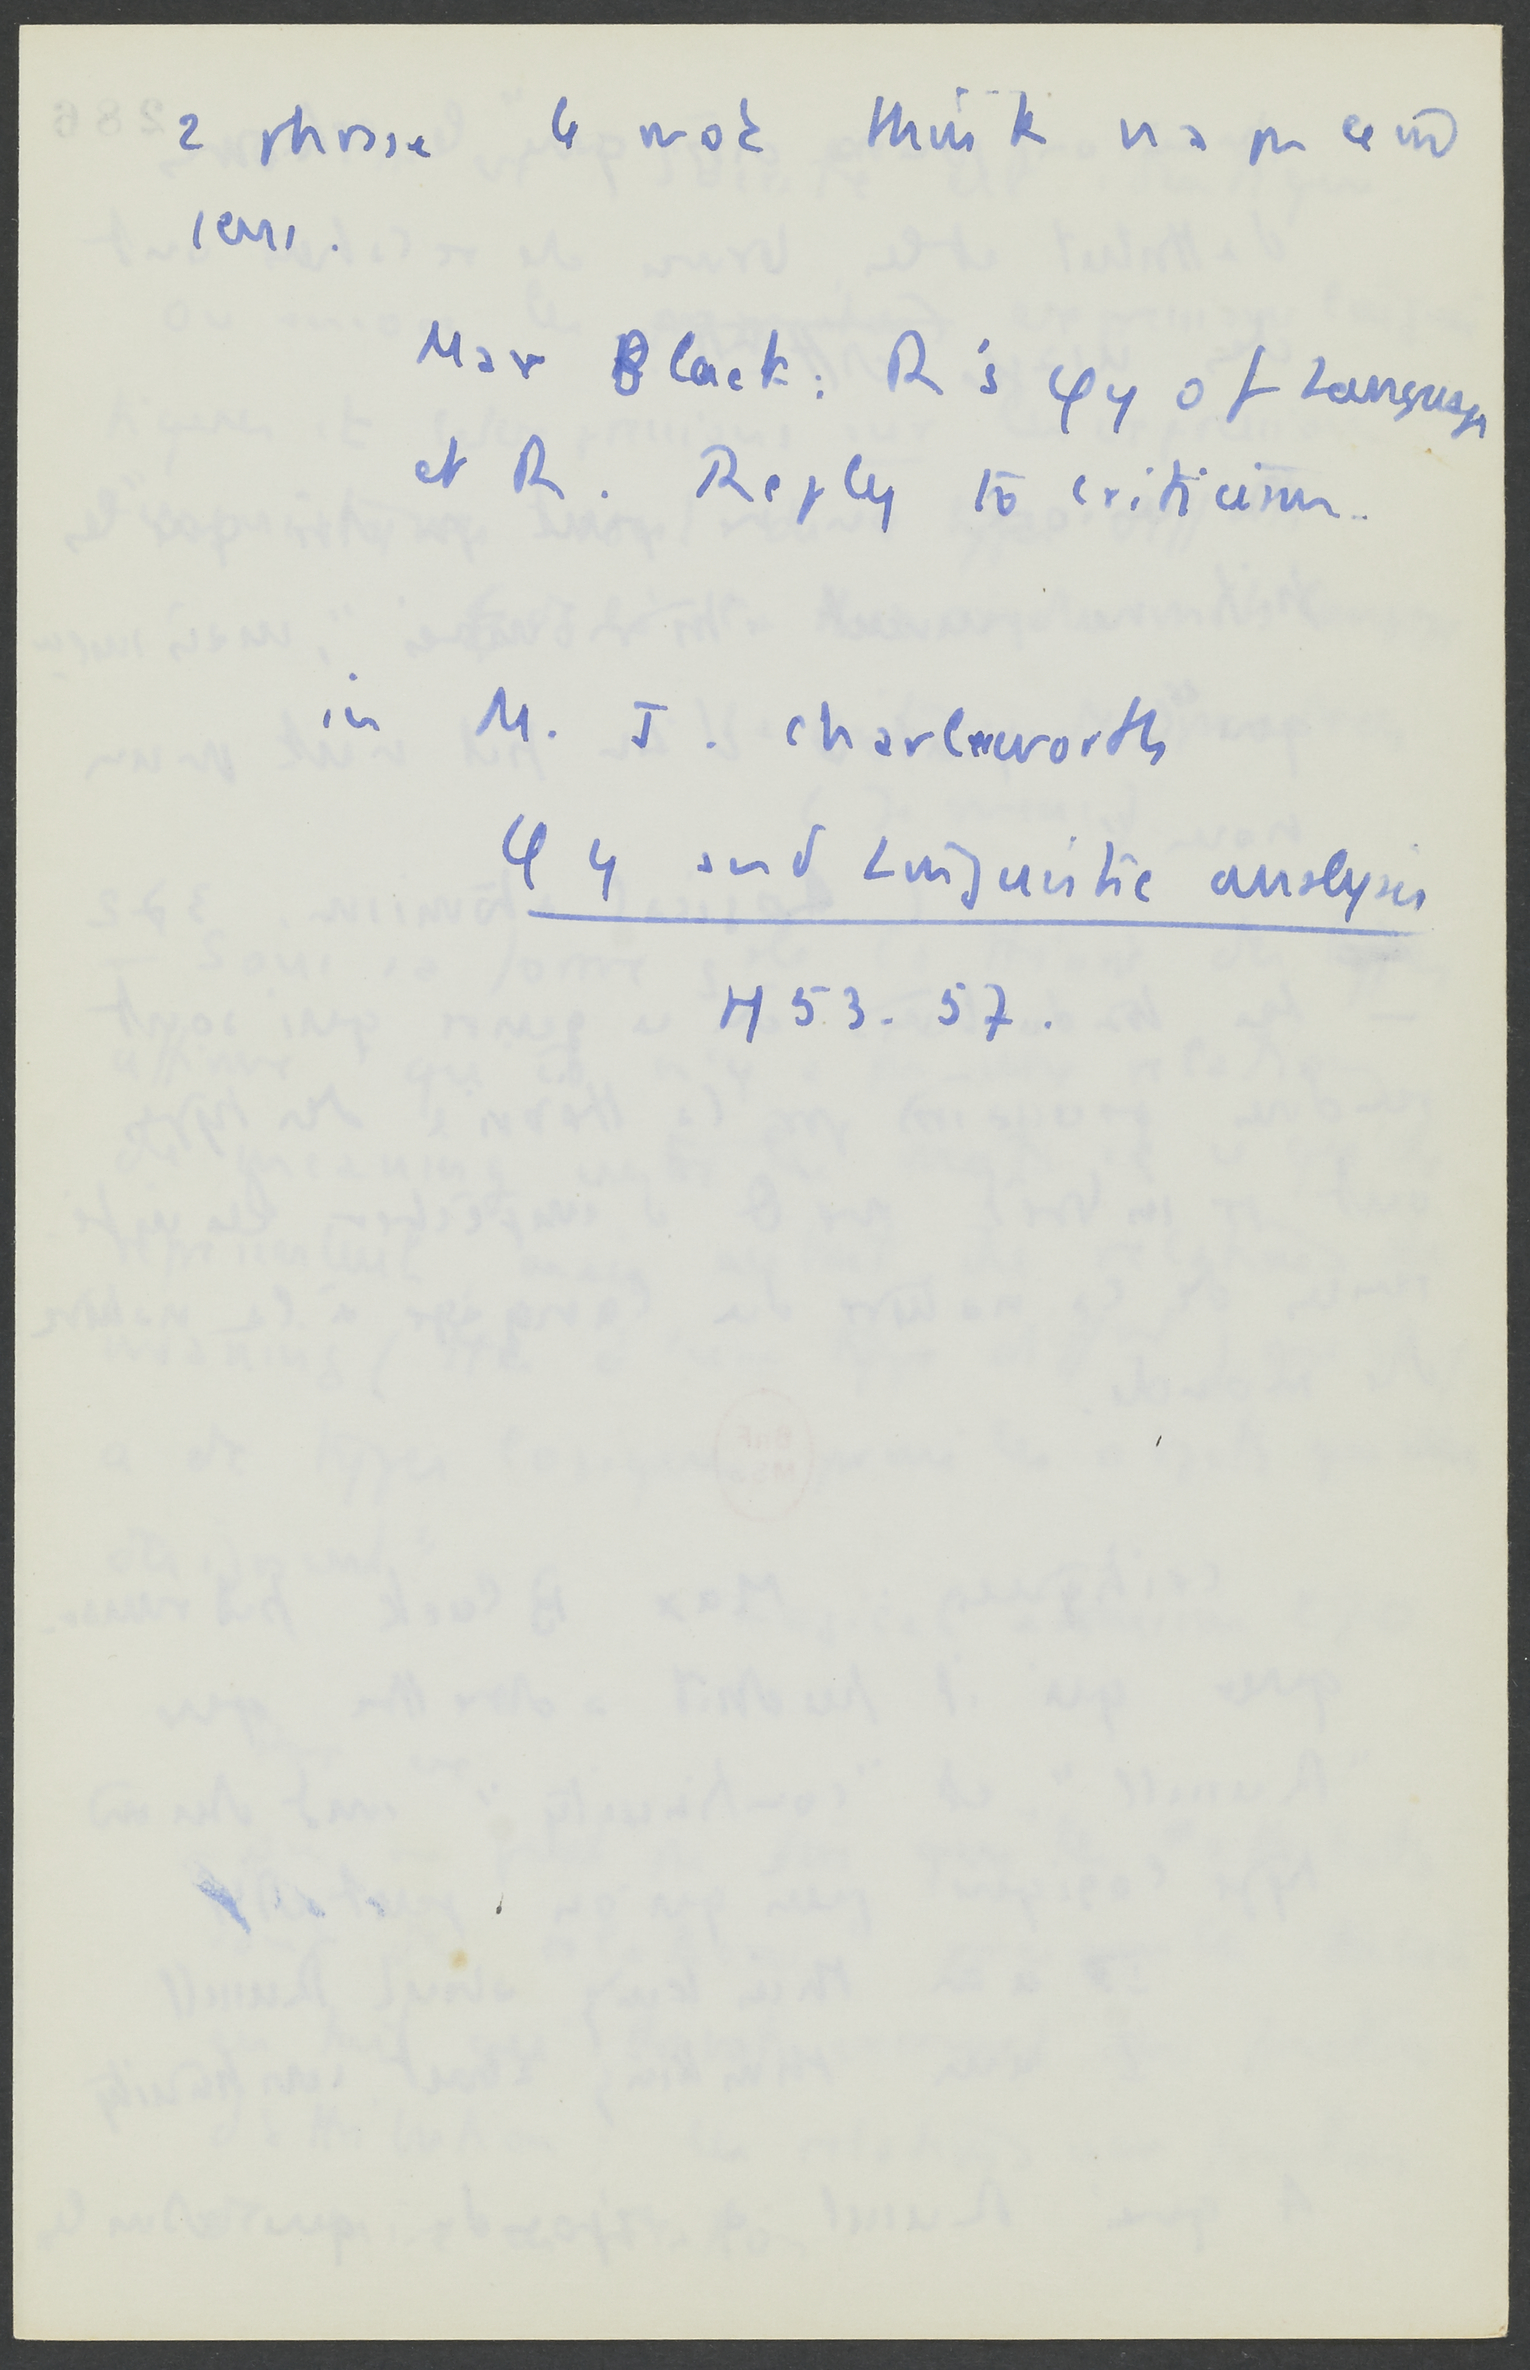 2 phrases le mot think n'a pas le m̂
sens.
Max Black : R's φy of Language
et R. Reply to criticism.
in M. J. Charlesworth
φy and Linguistic analysis
53-57.